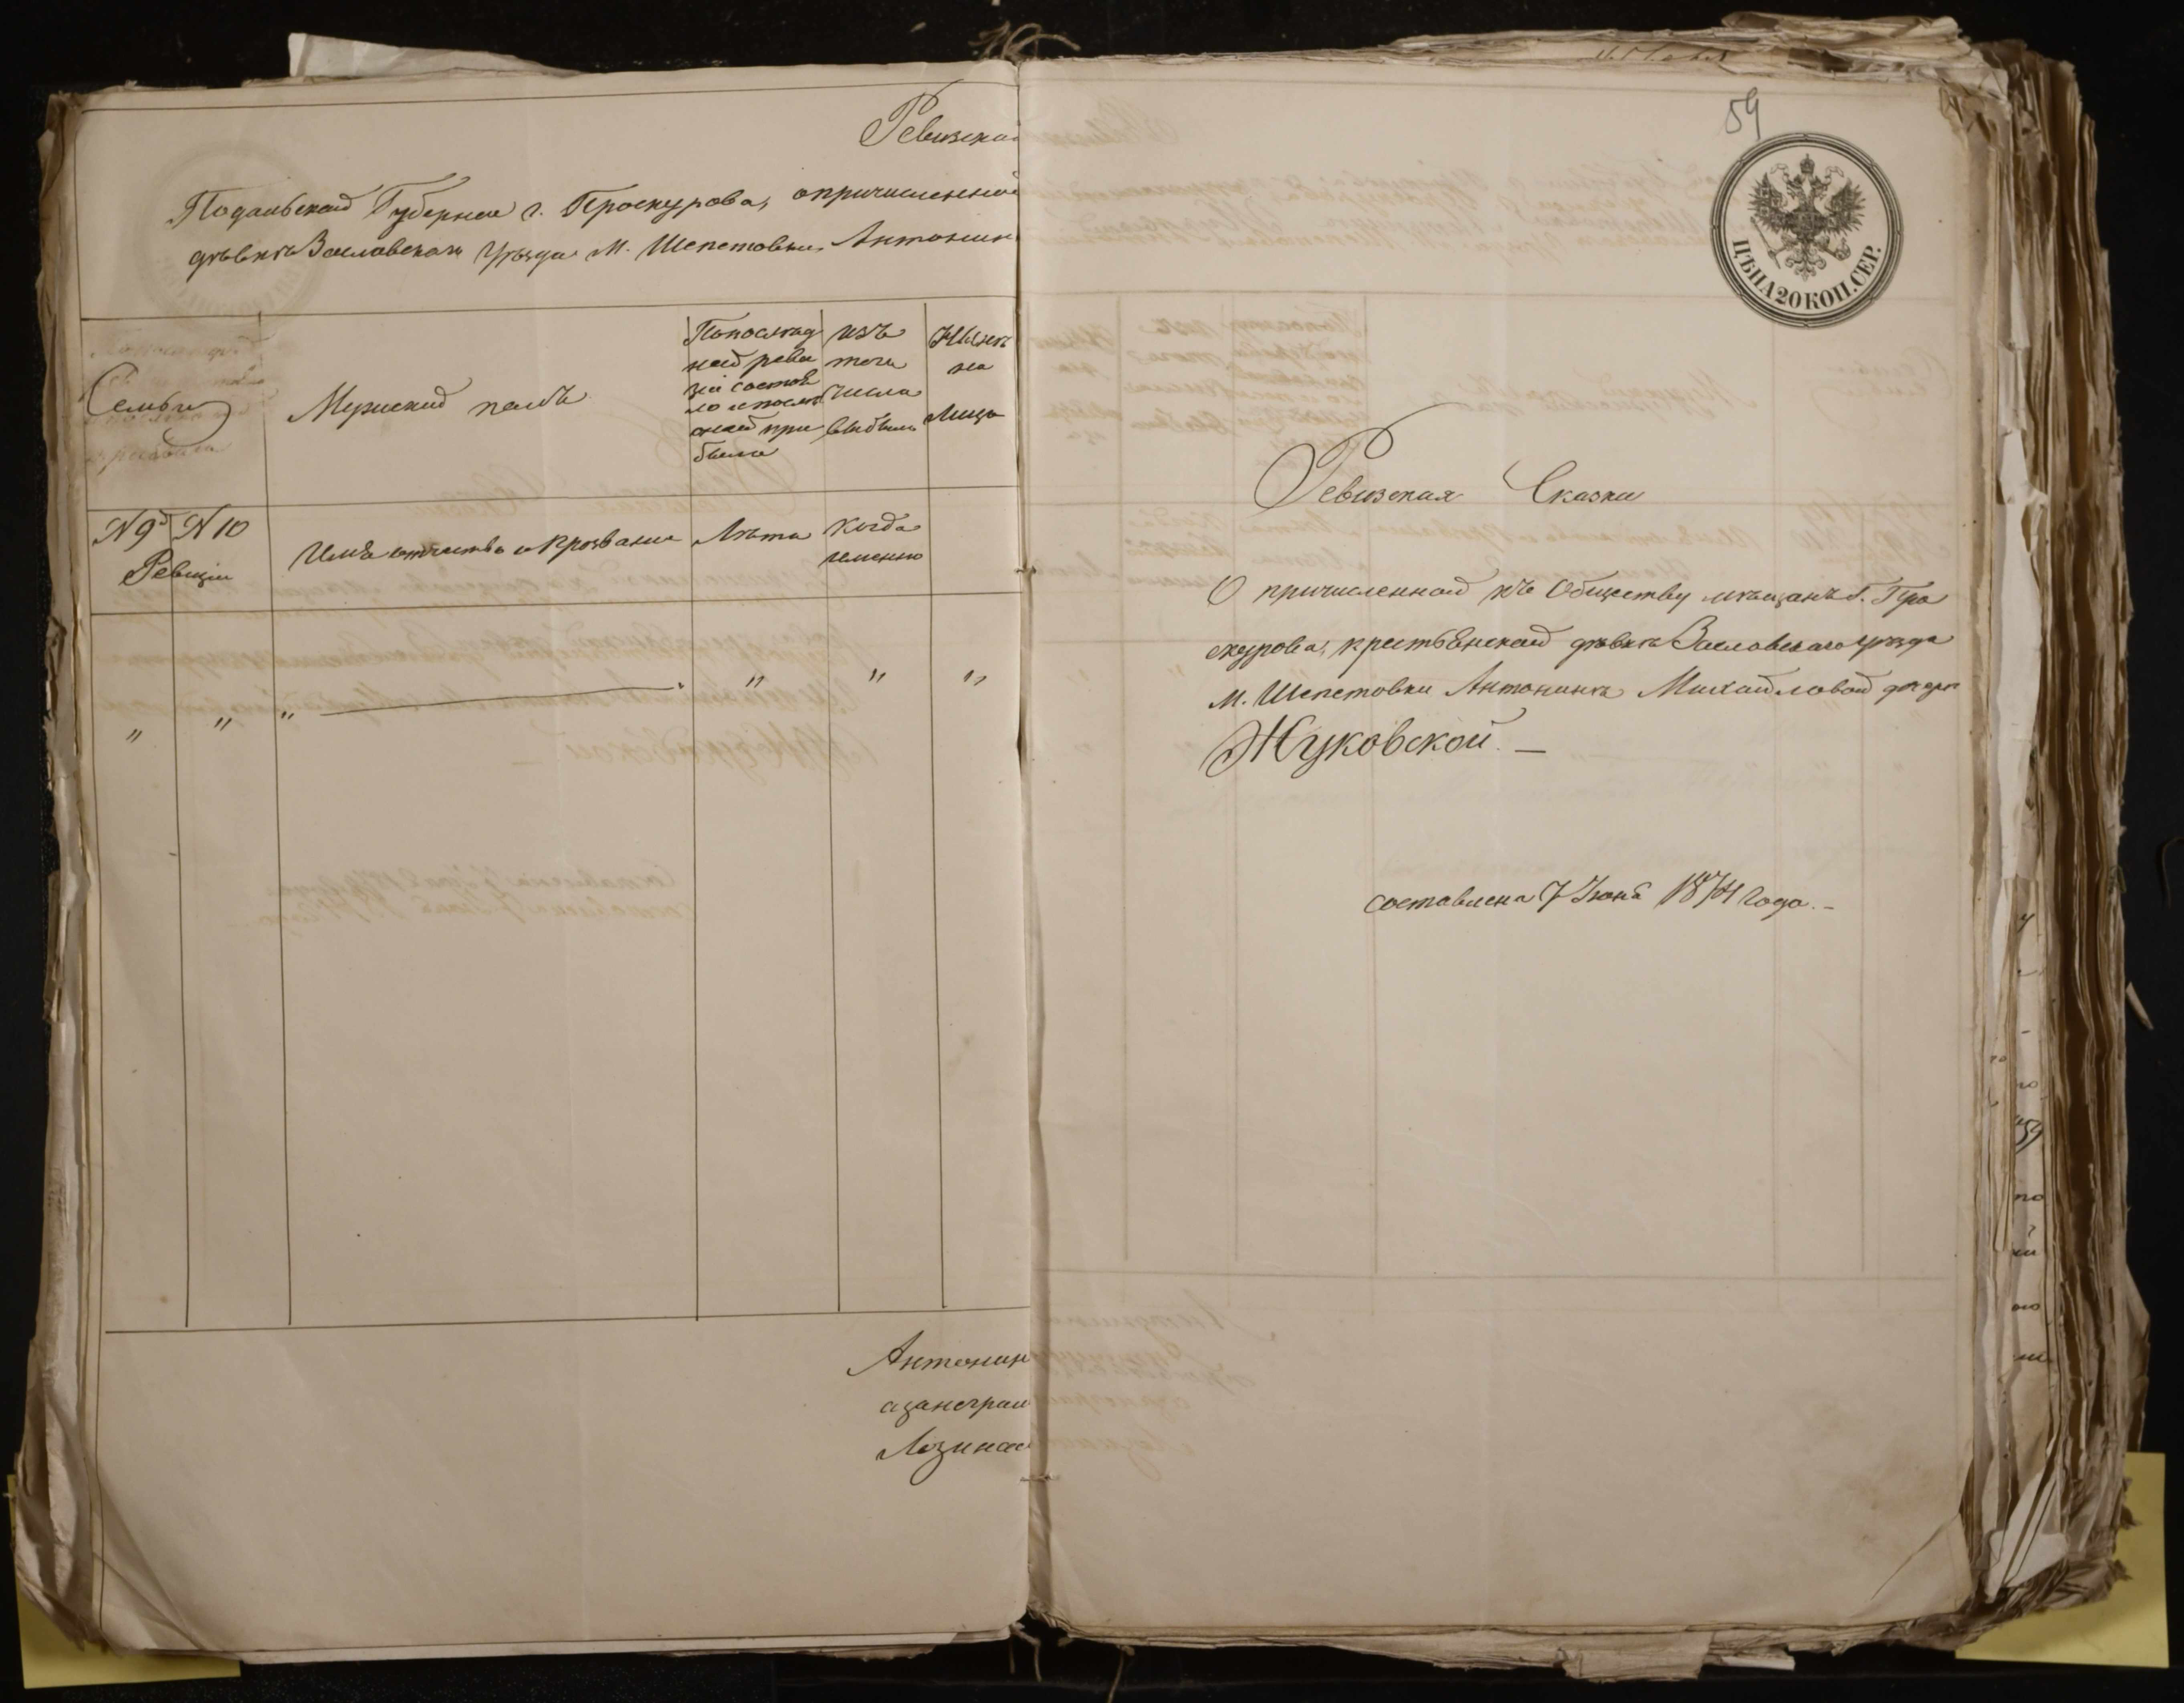 Ревизская
Подольской Губернiи г. Проскурова, о причисленной
дѣвкѣ Заславскаго Уѣзда М. Шепетовки, Антонин
Семьи
Мужеский полъ
По послѣд
ней реви
зiи состоя
ло и послѣ
оной при
было
изъ
того
числа
выбыло
Нынѣ
на
Лицо
№ 9й № 10
Ревизiи
Имя отчество и прозванiе
Лѣта
когда
именно
" " " " " "
Антонин
а за неграм
Лозинск
59
ЦѢНА 20 КОП. СЕР.
Ревизская Сказка
О причисленной къ Обществу мѣщанъ г. Про
скурова, крестьянской дѣвкѣ Заславскаго уѣзда
М. Шепетовки Антонинѣ Михайловой дочери
Жуковской. —
составлена 7 Iюня 1874 года. –